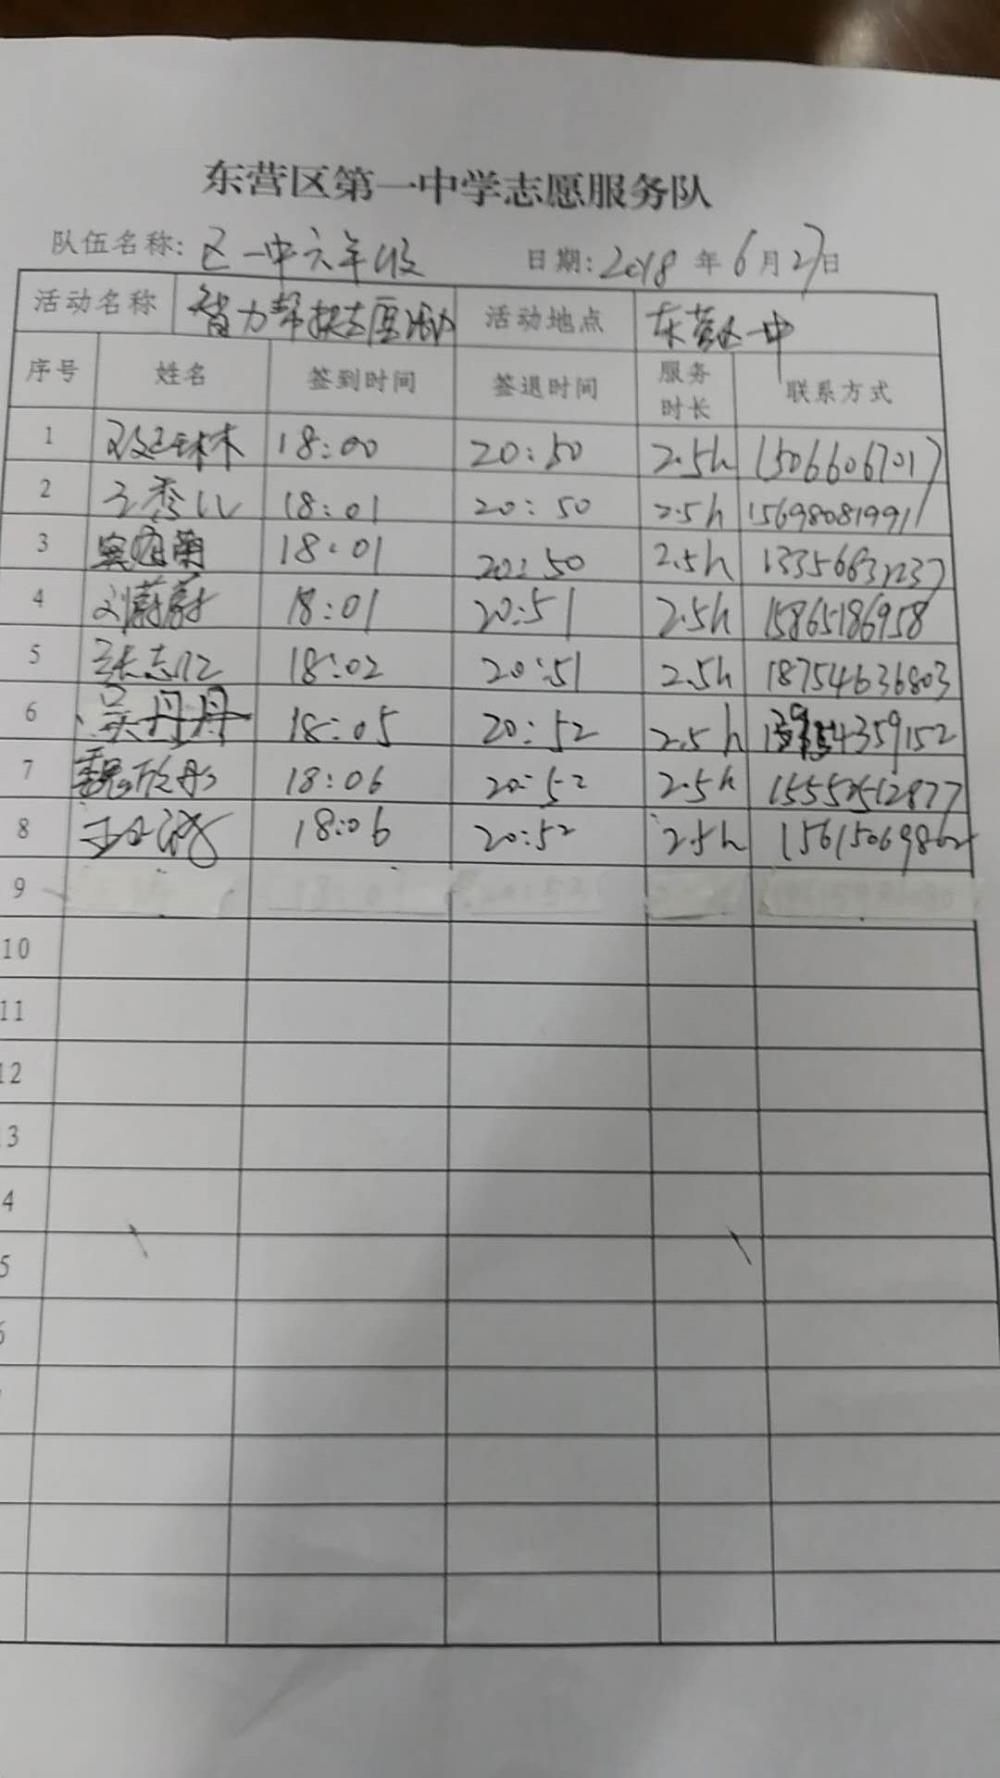 东营区第一中学志愿服务队
队伍名称: 区一中六年级 日期: 2018 年 6 月 27 日
活动名称 智力帮扶志愿活动 活动地点 东营区一中
序号 姓名 签到时间 签退时间 服务时长 联系方式
1 18:00 20:50 2.5h 15066067017
2 王秀儿 18:01 20:50 2.5h 15698081991
3 18:01 20:50 2.5h 13356631237
4 刘蔚蔚 18:01 20:51 2.5h 15865186958
5 张志仁 18:02 20:51 2.5h 18754636803
6 吴丹丹 18:05 20:52 2.5h
7 魏欣彤 18:06 20:52 2.5h 15550512877
8 18:06 20:52 2.5h
9
10
11
12
13
14